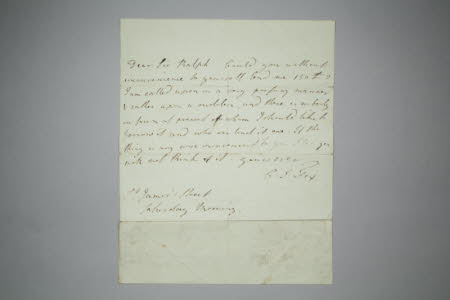 Dear Sir Ralph Could you without
inconvenience to yourself lend me 150£?
I am called upon in a very pressing manner
& rather upon a sudden, and there is nobody
in town at present of whom I should like to
borrow it and who can lend it me. If the
thing is any ways inconvenient to you I beg you
will not think of it yours ever
C. J. Fox
St James's Street
Saturday Morning.